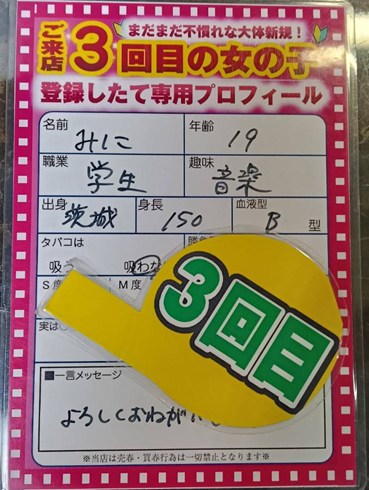 まだまだ不慣れな大体新規！
ご来店3回目の女の子
登録したて専用プロフィール
名前 みに 年齢 19
職業 学生 趣味 音楽
出身 茨城 身長 150 血液型 B 型
タバコは
吸う 吸わな
S度 M度
実は
3回目
■一言メッセージ
よろしくおねがい
※当店は売春・買春行為は一切禁止となります※